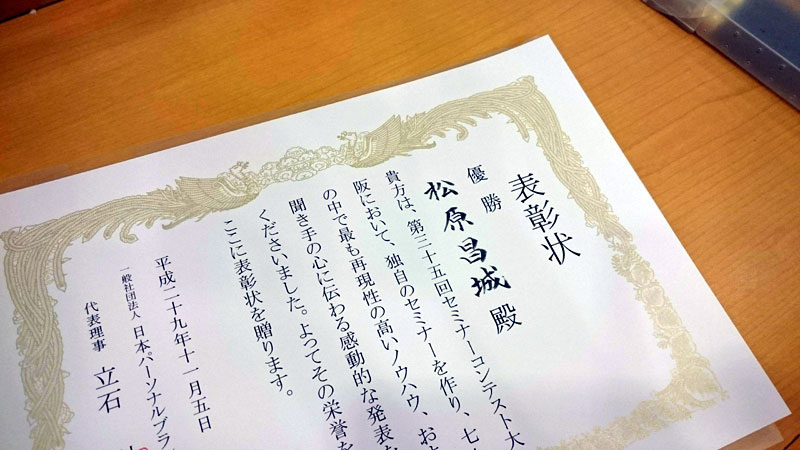 表彰状
優勝
松原昌城 殿
貴方は、第三十五回セミナーコンテスト大
阪において、独自のセミナーを作り、七
の中で最も再現性の高いノウハウ、およ
聞き手の心に伝わる感動的な発表を
くださいました。よってその栄誉を
ここに表彰状を贈ります。
平成二十九年十一月五日
一般社団法人 日本パーソナルブラ
代表理事 立石